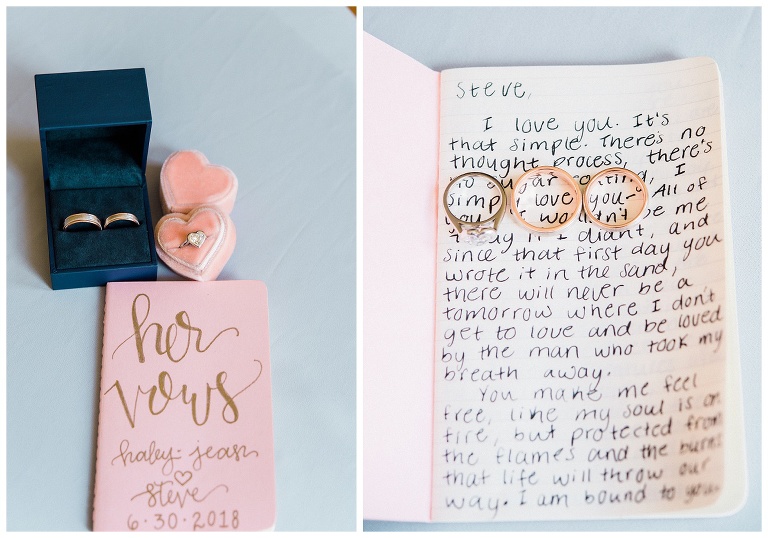 her
vows
haley-jean
steve
6.30.2018
Steve,
I love you. It's
that simple. There's no
thought process, there's
no sugar coating, I
simply love you- All of
you. I wouldn't be me
if I didnt, and
since that first day you
wrote it in the sand,
there will never be a
tomorrow where I don't
get to love and be loved
by the man who took my
breath away.
You make me feel
free, like my soul is on
fire, but protected from
the flames and the burns
that life will throw our
way. I am bound to